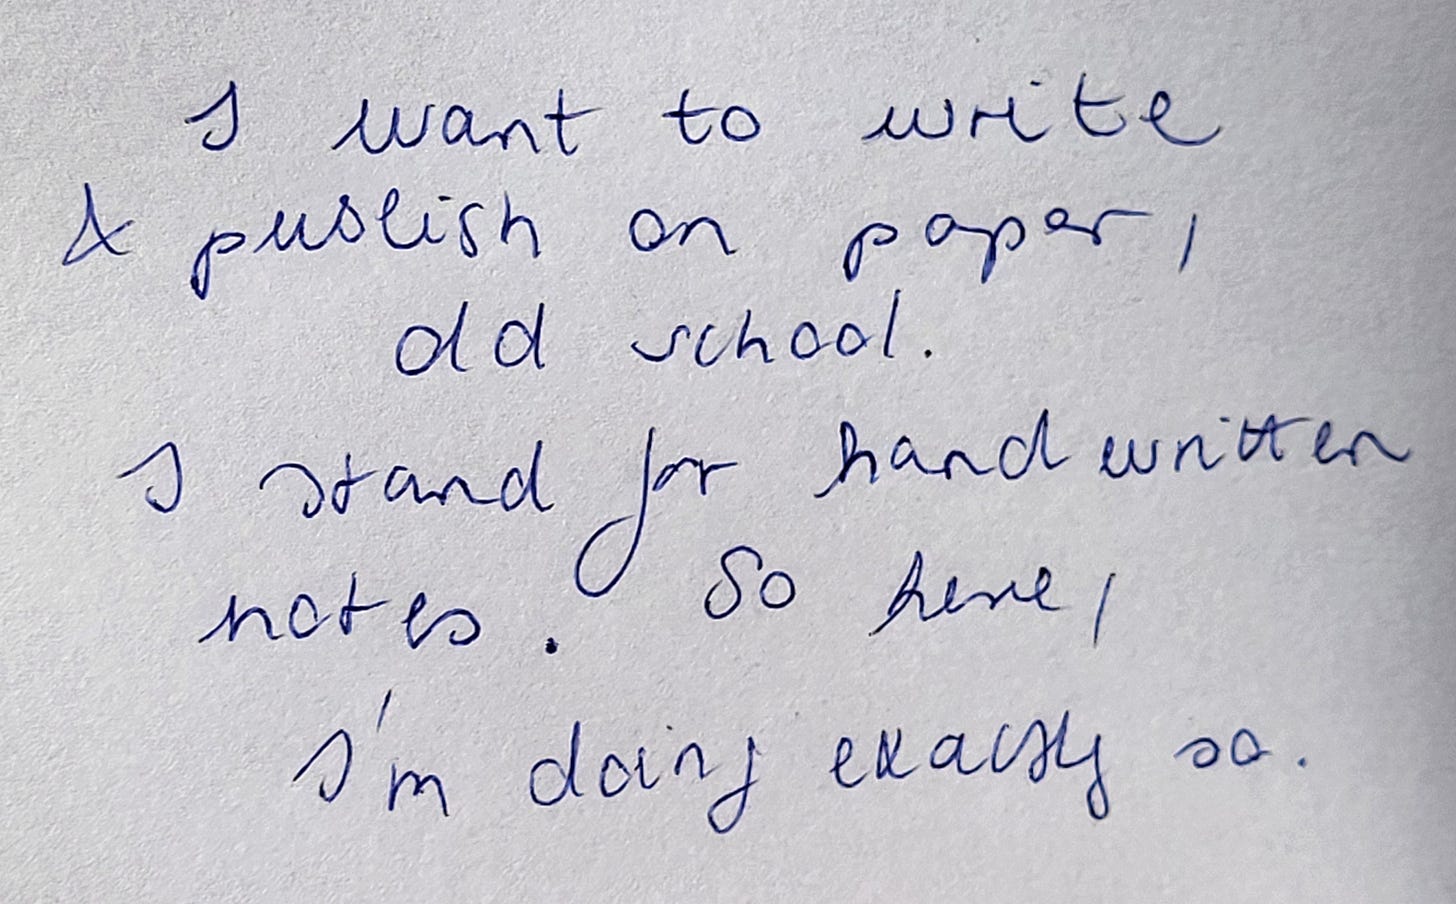 I want to write
& publish on paper,
old school.
I stand for handwritten
notes. So here,
I'm doing exactly so.